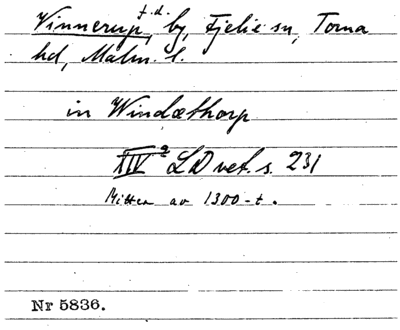 Vinnerup, f.d. by, Fjelie sn, Torna
hd, Malm. l.
in Windæthorp
XIV 2 LD vet. s. 231
Mitten av 1300-t.
Nr 5836.